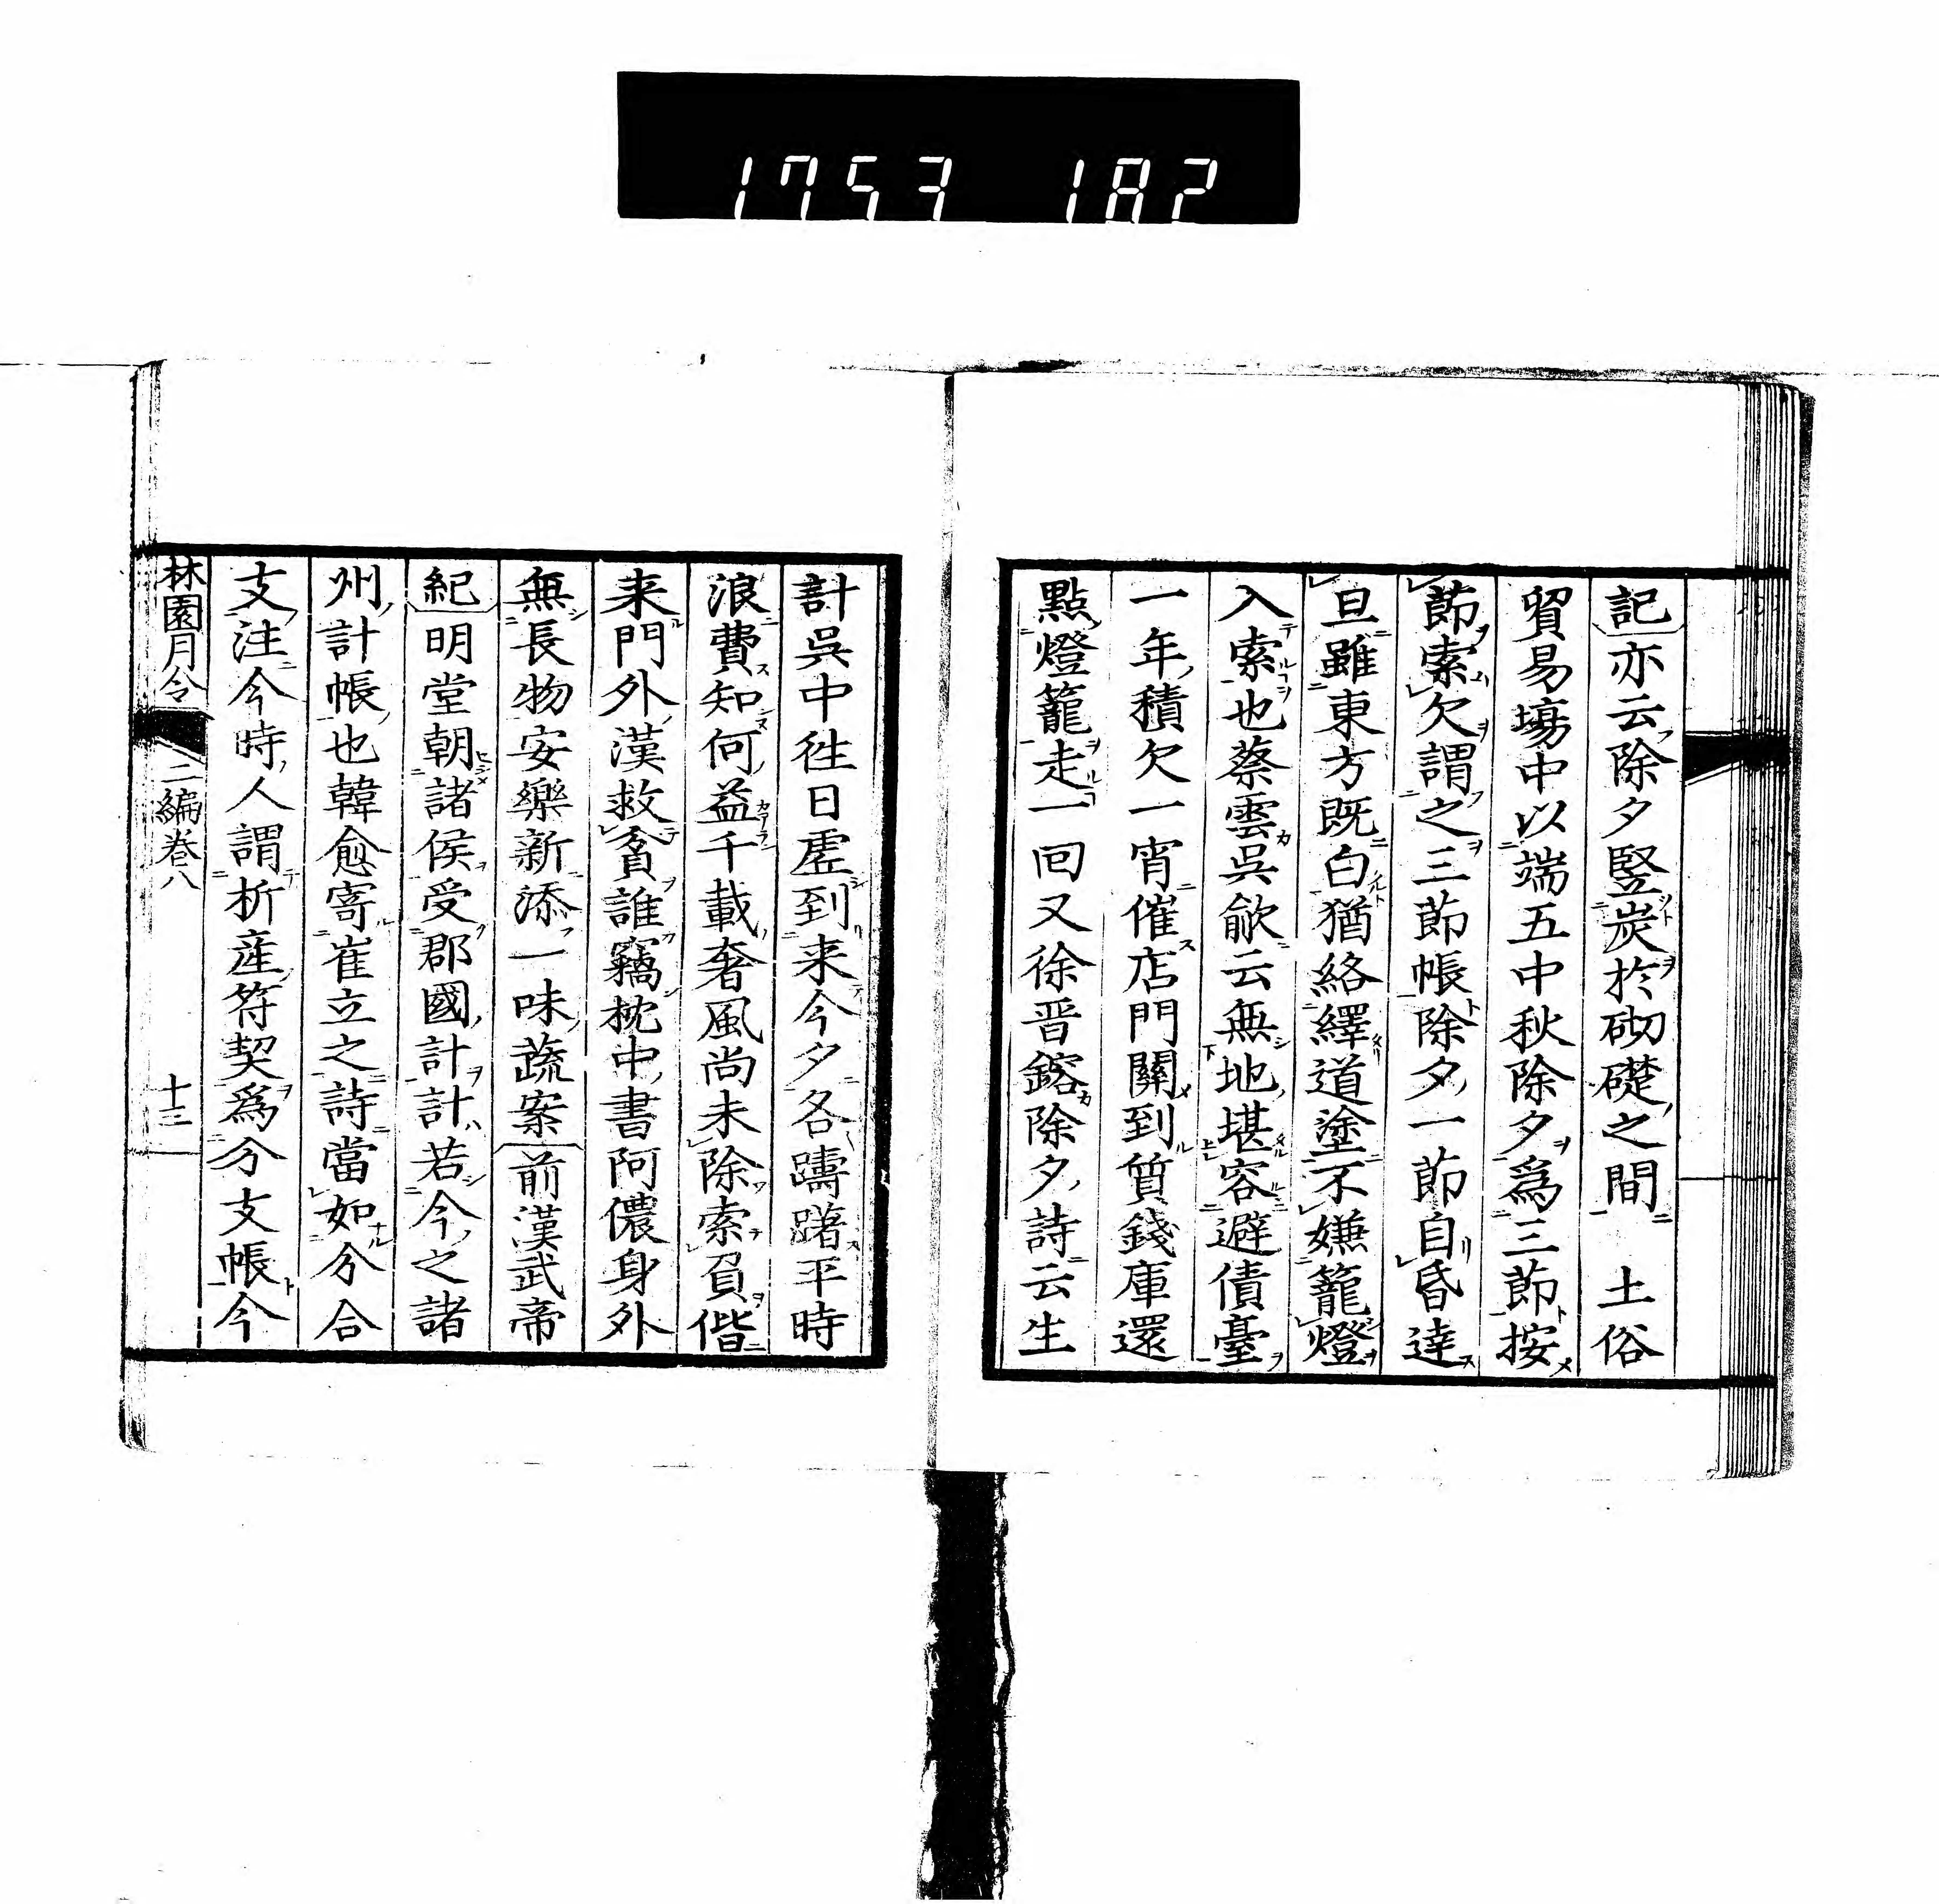 1753 182
記亦云除夕竪炭於砌礎之間　土俗
貿易塲中以端五中秋除夕爲三節按
節索欠謂之三節帳除夕一節自昏達
旦雖東方既白猶絡繹道塗不嫌籠燈
入索也蔡雲呉歈云無地堪容避債臺
一年積欠一宵催店門關到質錢庫還
點燈籠走一回又徐晋鎔除夕詩云生
計呉中徃日虚到来今夕各躊躇平時
浪費知何益千載奢風尚未除索負偕
来門外漢救貧誰竊枕中書阿儂身外
無長物安樂新添一味蔬案前漢武帝
紀明堂朝諸侯受郡國計計若今之諸
州計帳也韓愈寄崔立之詩當如分合
支注今時人謂析産符契爲分支帳今
林園月令　二編巻八　十三